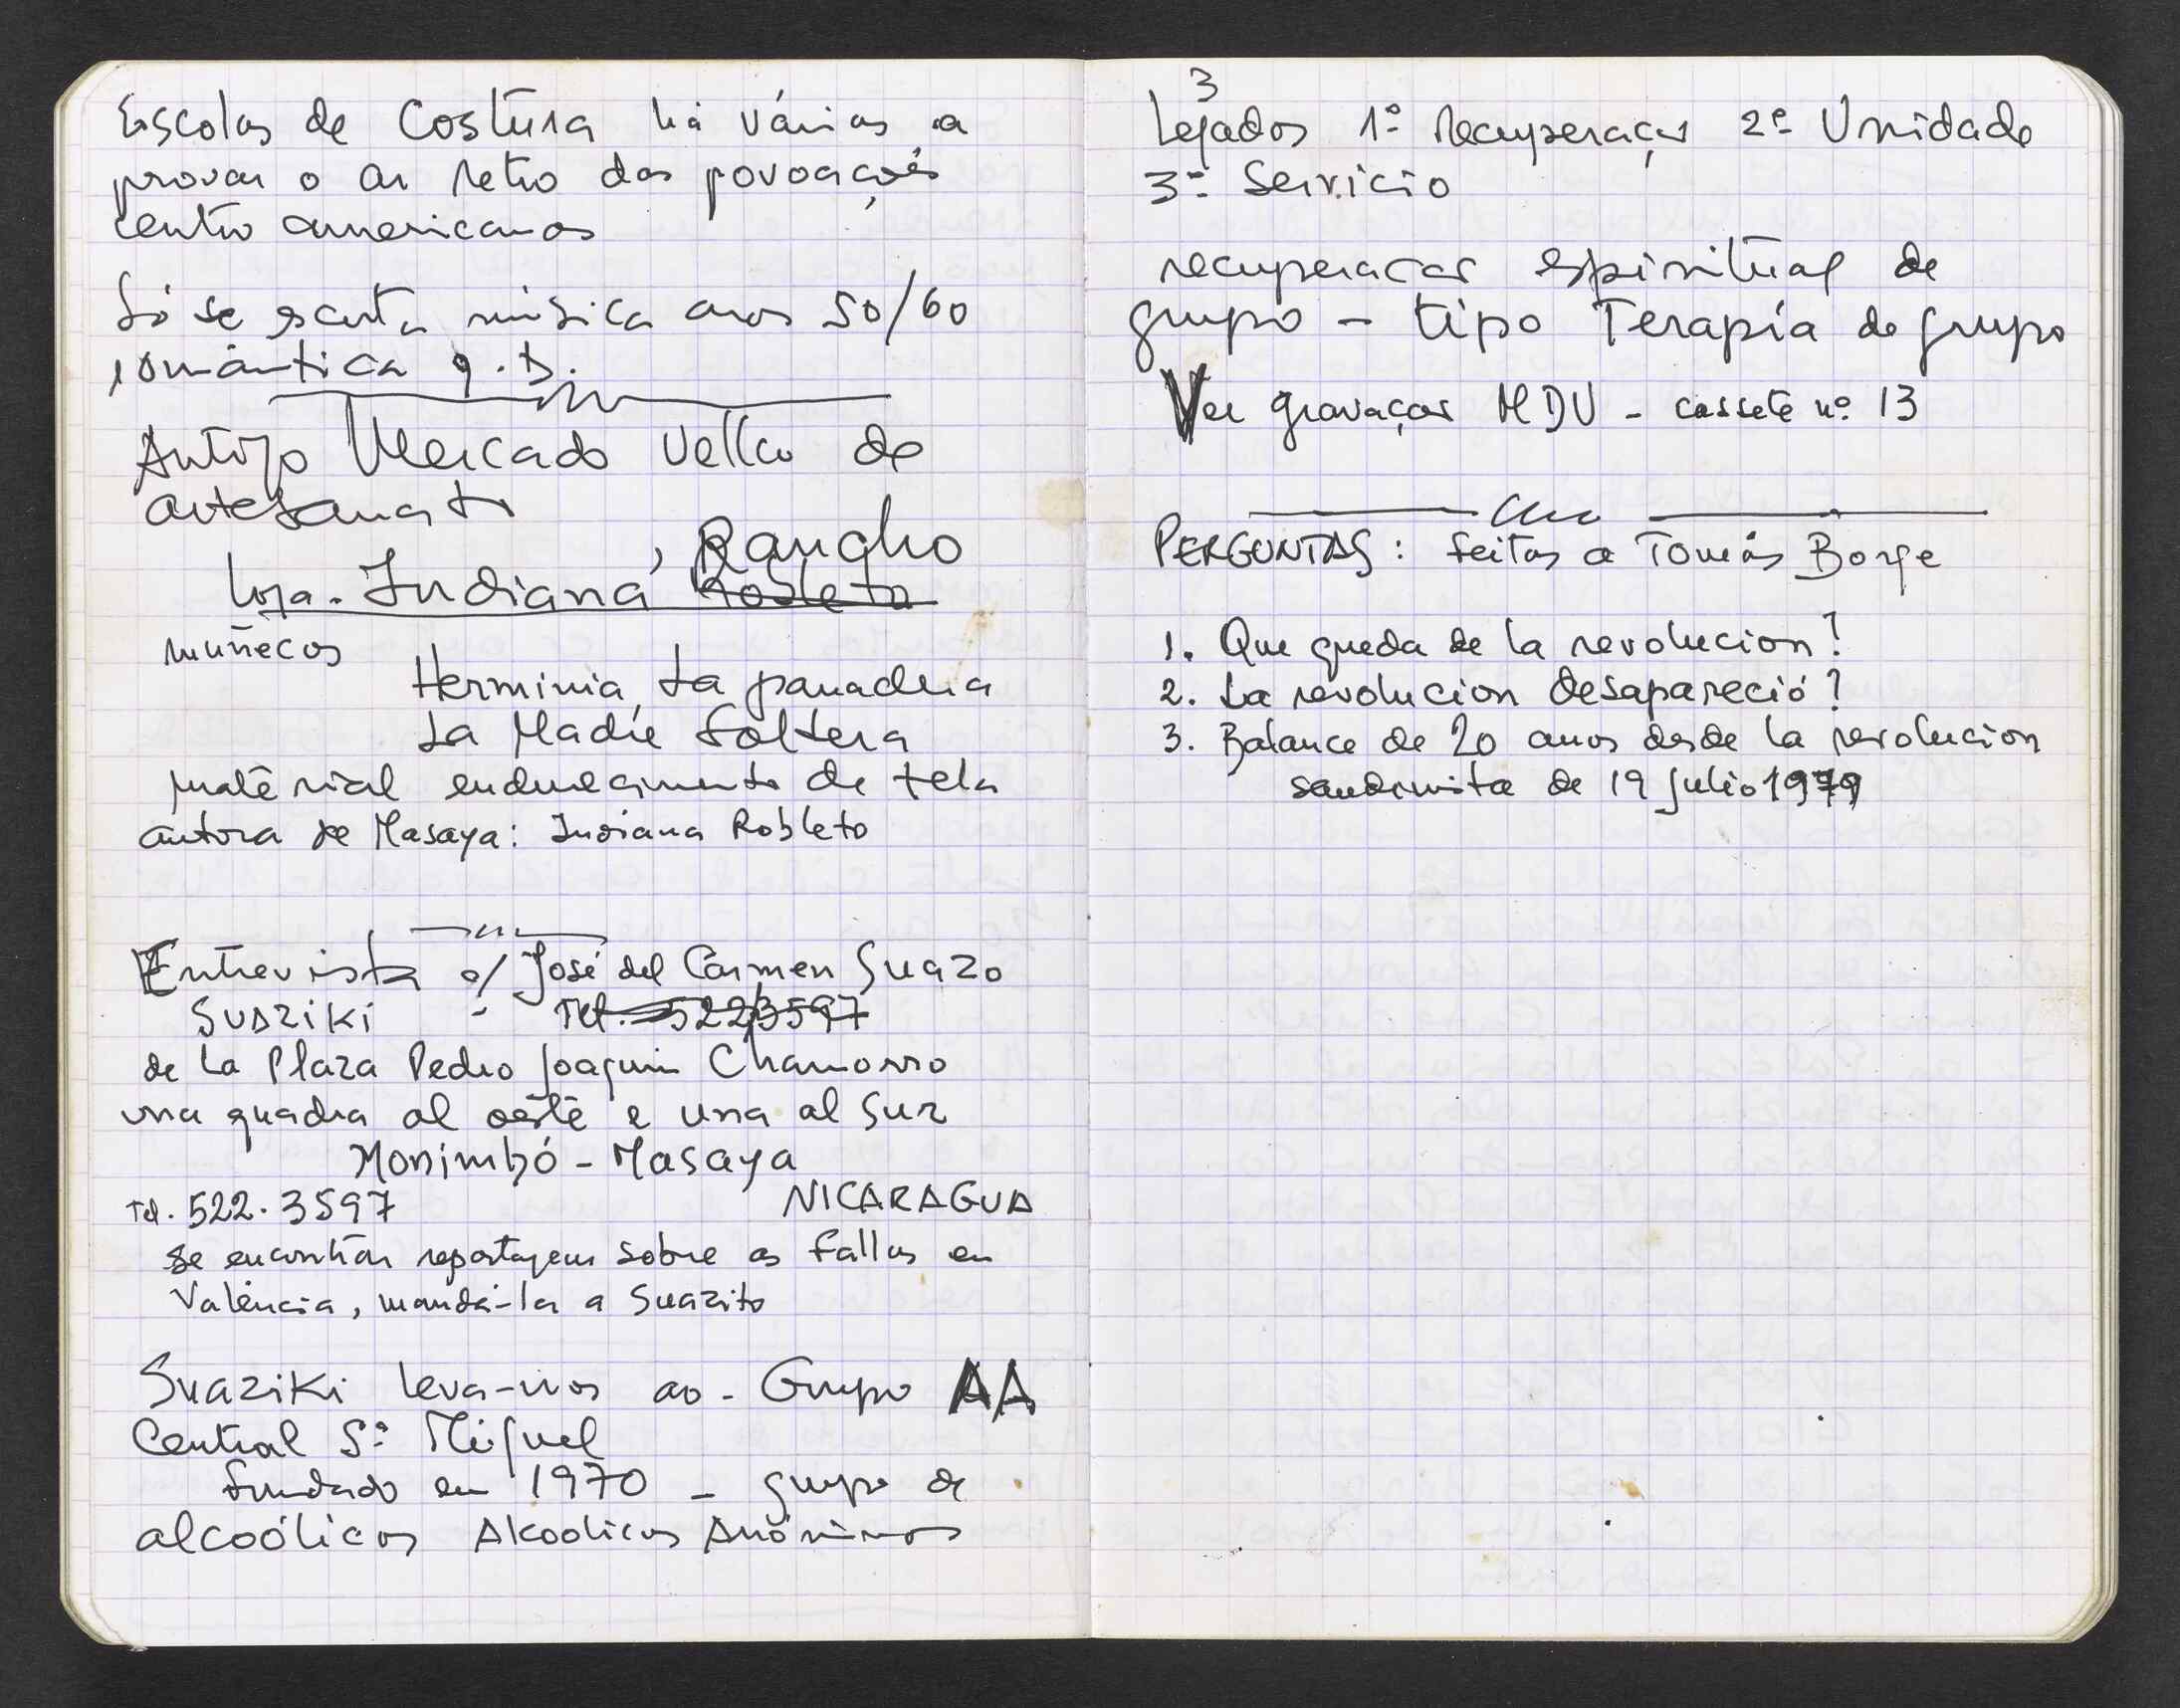 Escolas de Costura há várias a
provar o ar retro das povoações
centro americanas
Só se escuta música anos 50/60
romântica q.b.
Antigo Mercado Velho de
artesanato
Loja - Indiana, Rangho
Robleto
muñecos
Herminia, La panadera
La Madre Soltera
material endurecimento de tela
autora de Masaya: Indiana Robleto
Entrevista c/ José del Carmen Suazo
SUAZIKI - Tel. 522/3597
de La Plaza Pedro Joaquin Chamorro
una quadra al oeste e una al sur
Monimbó - Masaya
Tel. 522.3597 NICARAGUA
Se encontrar reportagem sobre as fallas en
Valência, mandá-la a Suazito
Suaziki leva-nos ao - Grupo AA
Central S. Miguel
fundado em 1970 - grupo de
alcoólicos Alcoolicos Anónimos
3
Legados 1º recuperaças 2º Unidade
3º Servicio
recuperaças espiritual de
grupo - tipo Terapía de grupo
Ver gravaças MDV - cassete nº 13
PERGUNTAS: feitas a Tomás Borge
1. Que queda de la revolucion?
2. La revolucion desapareció?
3. Balance de 20 anos desde la revolucion
sandinista de 19 Julio 1979